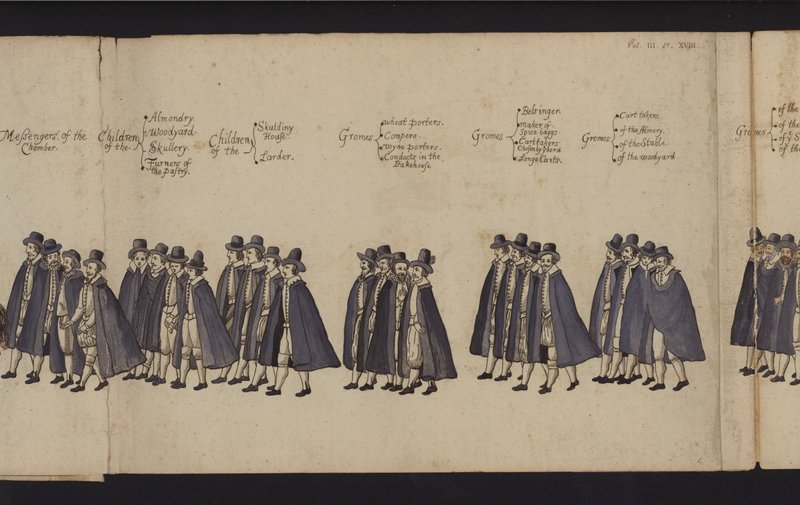 Vol. III. Pl. XVIII.
Messengers of the
Chamber.
Children
of the
Almondry
Woodyard
Skullery.
Furners of
the pastry.
Children
of the
Skulding
House.
Larder.
Gromes
wheat porters.
Compere.
wyne porters.
Conducts in the
Bakehouse
Gromes
Belringer.
maker of
Spice baggs
Cart takers
Longe Carts.
Gromes
Cart takers.
of the Almery.
of the Stable.
of the woodyard
Gromes
of the
of the
of y S
of the